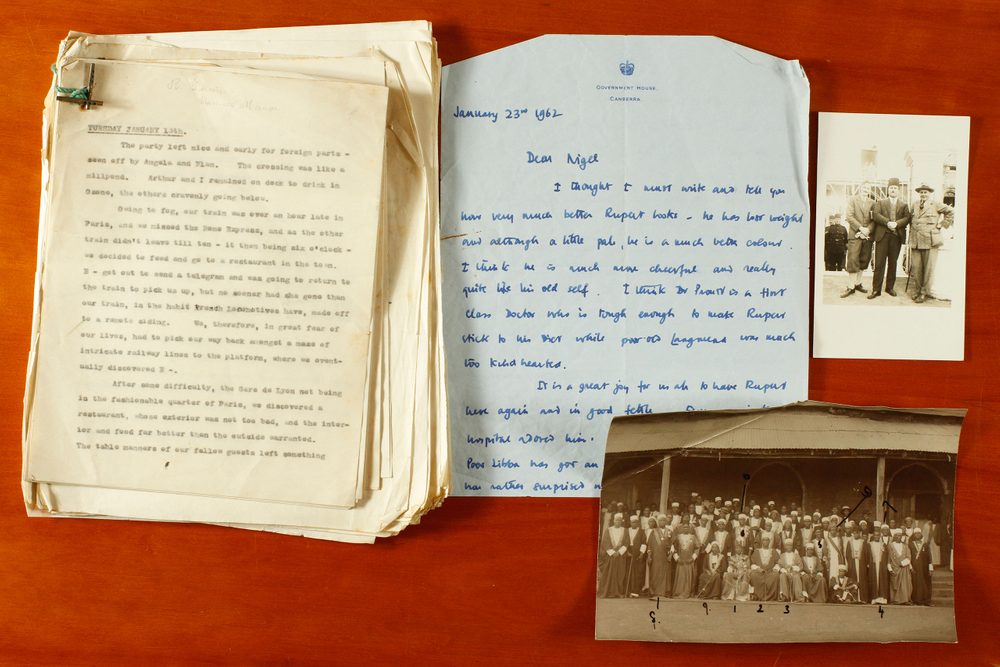 TUESDAY JANUARY 13th.
The party left nice and early for foreign parts -
seen off by Angela and Flan. The crossing was like a
millpond. Arthur and I remained on deck to drink in
Ozone, the others cravenly going below.
Owing to fog, our train was over an hour late in
Paris, and we missed the Rome Express, and as the other
train didn't leave till ten - it then being six o'clock -
we decided to food and go to a restaurant in the town.
E - got out to send a telegram and was going to return to
the train to pick us up, but no sooner had she gone than
our train, in the habit French Locomotives have, made off
to a remote siding. We, therefore, in great fear of
our lives, had to pick our way back amongst a maze of
intricate railway lines to the platform, where we event-
ually discovered E -.
After some difficulty, the Gare de Lyon not being
in the fashionable quarter of Paris, we discovered a
restaurant, whose exterior was not too bad, and the inter-
ior and food far better than the outside warranted.
The table manners of our fellow guests left something
GOVERNMENT HOUSE,
CANBERRA.
January 23rd 1962
Dear Nigel
I thought I must write and tell you
how very much better Rupert looks - he has lost weight
and although a little pale, he is a much better colour.
I think he is much more cheerful and really
quite like his old self. I think Dr is a First
Class Doctor who is tough enough to make Rupert
stick to his Diet while poor old Langmead was much
too kind hearted.
It is a great joy for us all to have Rupert
here again and in good fettle.
hospital adored him.
Poor Libba has got an
has rather surprised
9. 1 2 3 4